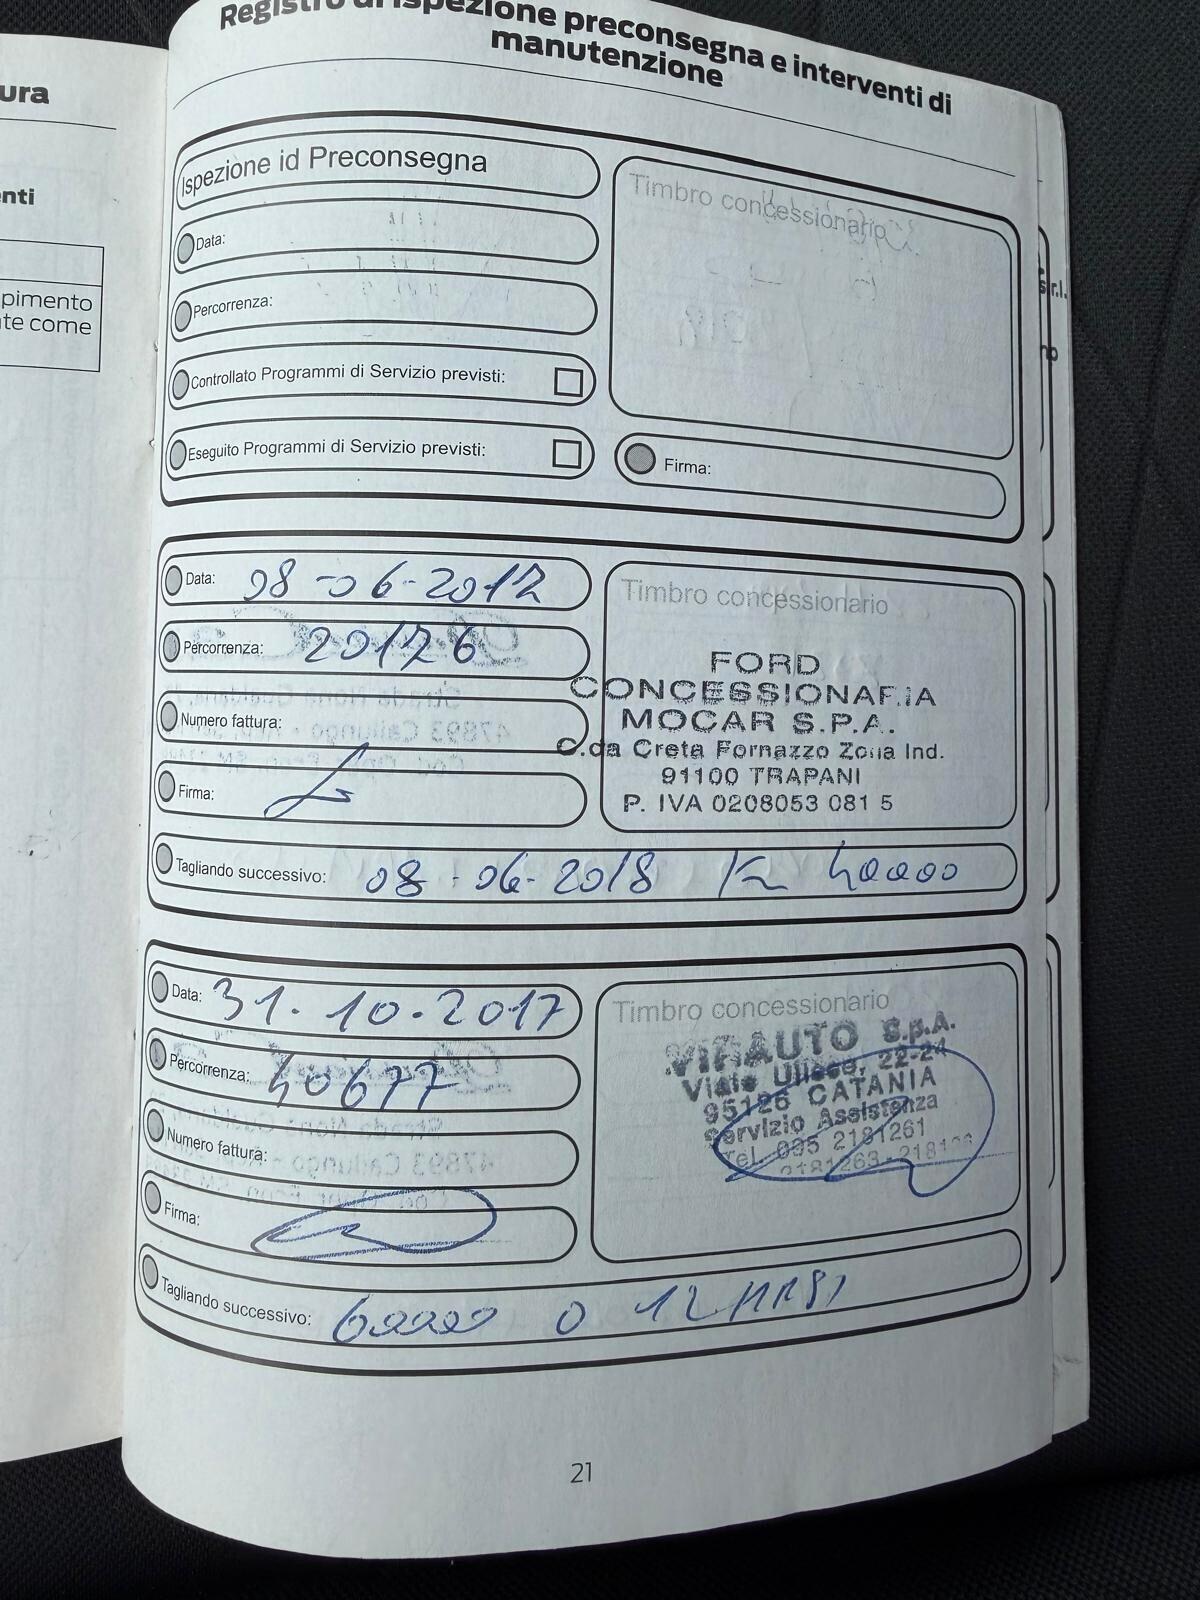 ura
enti
pimento
te come
Registro di ispezione preconsegna e interventi di
manutenzione
Ispezione id Preconsegna
Data:
Percorrenza:
Controllato Programmi di Servizio previsti:
Eseguito Programmi di Servizio previsti:
Timbro concessionario
Firma:
Data: 08-06-2017
Percorrenza: 20176
Numero fattura:
Firma:
Timbro concessionario
FORD
CONCESSIONARIA
MOCAR S.P.A.
C.da Creta Fornazzo Zona Ind.
91100 TRAPANI
P. IVA 0208053 081 5
Tagliando successivo: 08-06-2018 Km 40000
Data: 31.10.2017
Percorrenza: 40677
Numero fattura:
Firma:
Timbro concessionario
VIRAUTO S.p.A.
Viale Ulisse, 22-24
95126 CATANIA
Servizio Assistenza
Tel. 095 2181261
2181263-
Tagliando successivo: 60000 o 12 MESI
21
s.r.l.